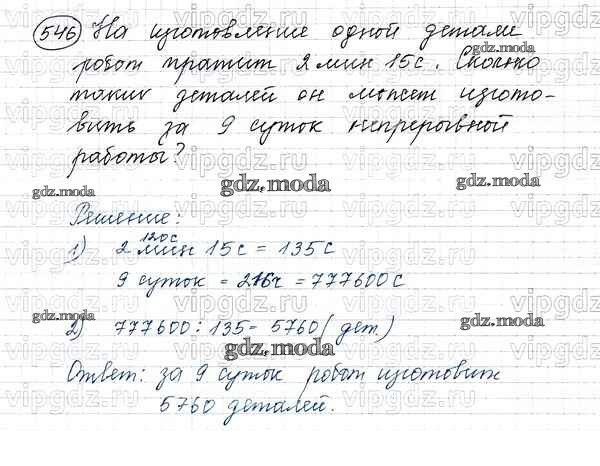 546 На изготовление одной детали
робот тратит 2 мин 15 с. Сколько
таких деталей он может изгото-
вить за 9 суток непрерывной
работы?
Решение:
120с
1) 2 мин 15с = 135с
9 суток = 216ч = 777600 с
2) 777600 : 135 = 5760 (дет.)
Ответ: за 9 суток робот изготовит
5760 деталей.
gdz.moda
gdz.moda
gdz.moda
gdz.moda
gdz.moda
gdz.moda
gdz.moda
vipgdz.ru